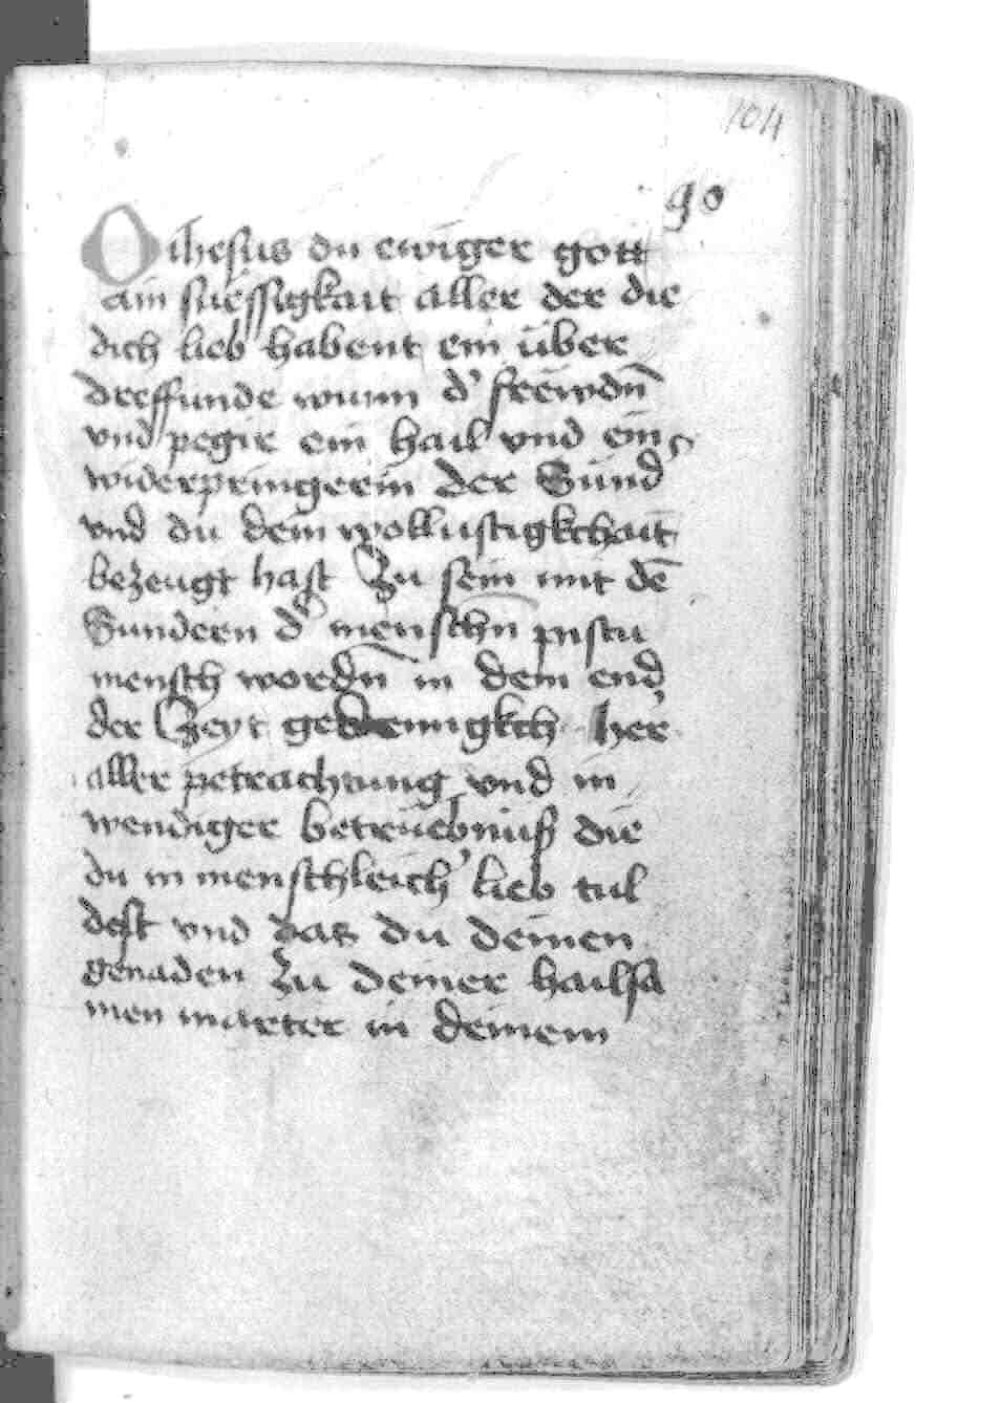 104
90
O ihesus du ewiger gott
ain suessigkait aller der die
dich lieb habent ein über
dreffunde wunn d' frewdn̄
vnd pegir ein hail vnd ein
widerpringerin der Sünd
vnd du dein wollustigkchait
bezeugt hast Zu sein mit dē
Sundern d' menschn̄ pistu
mensch wordn̄ in dem end
der Zeyt her
aller petrachtung vnd in
wendiger betruebnuß die
du in menschleich' lieb tul
dest vnd das du deinen
genaden Zu deiner hailsa
men marter in deinem